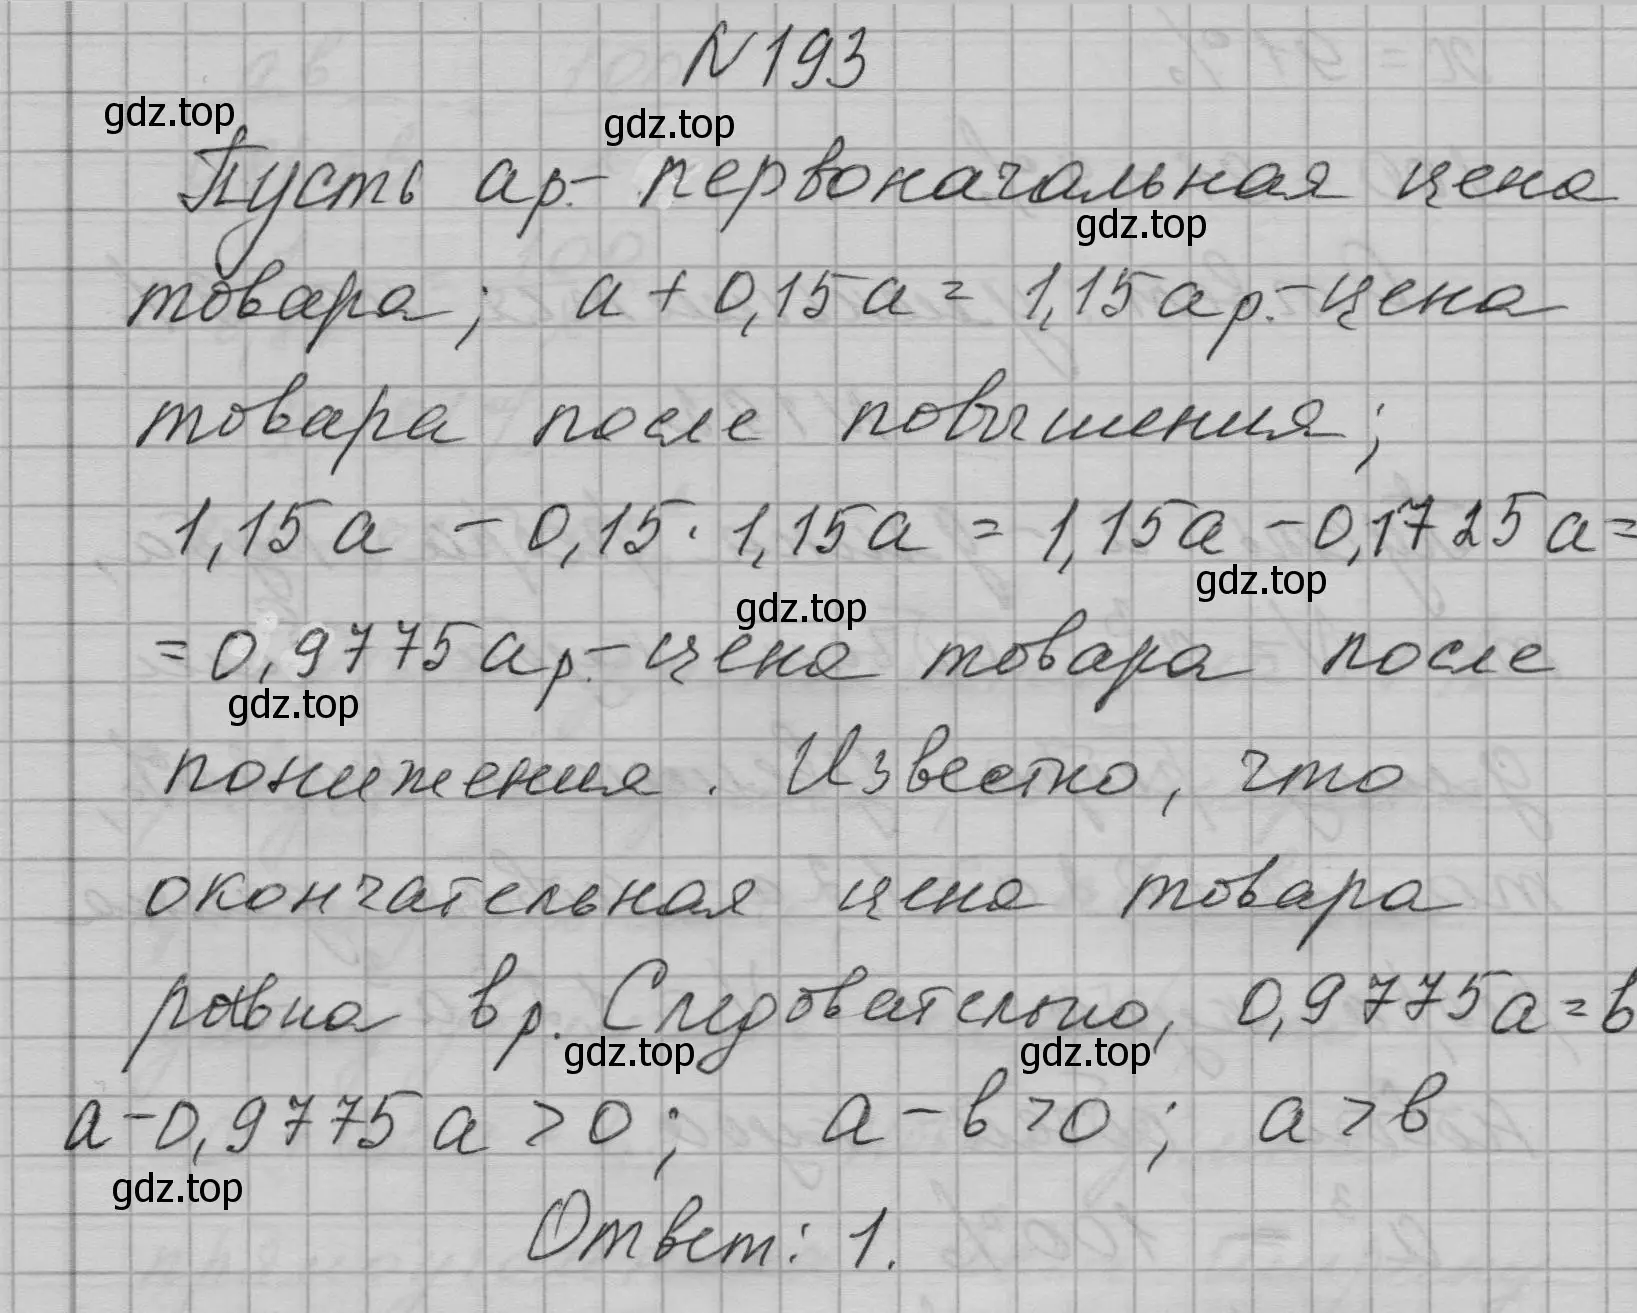 N 193
gdz.top
gdz.top
Пусть a р.- первоначальная цена
gdz.top
товара; a + 0,15a = 1,15a р.- цена
товара после повышения;
1,15a - 0,15 · 1,15a = 1,15a - 0,1725a =
gdz.top
gdz.top
= 0,9775a р.- цена товара после
gdz.top
понижения. Известно, что
окончательная цена товара
равна в р. Следовательно, 0,9775a = в
gdz.top
gdz.top
a - 0,9775a > 0; a - в > 0; a > в
gdz.top
Ответ: 1.